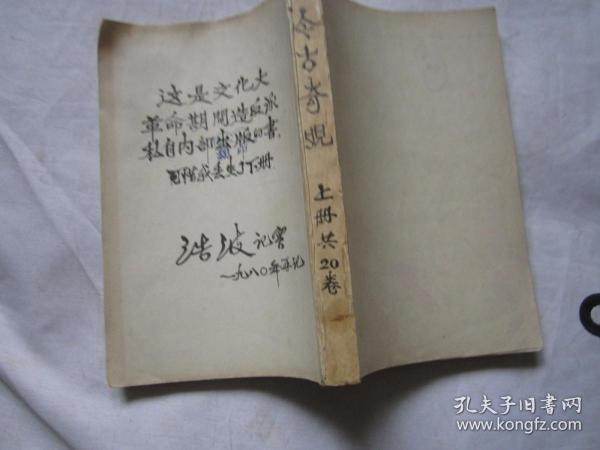 这是文化大
革命期間造反派
私自内部出版的書.
翻印
丢失了下册
浩波 记
一九八〇年
今古奇观
上册共20卷
孔夫子旧书网
www.kongfz.com